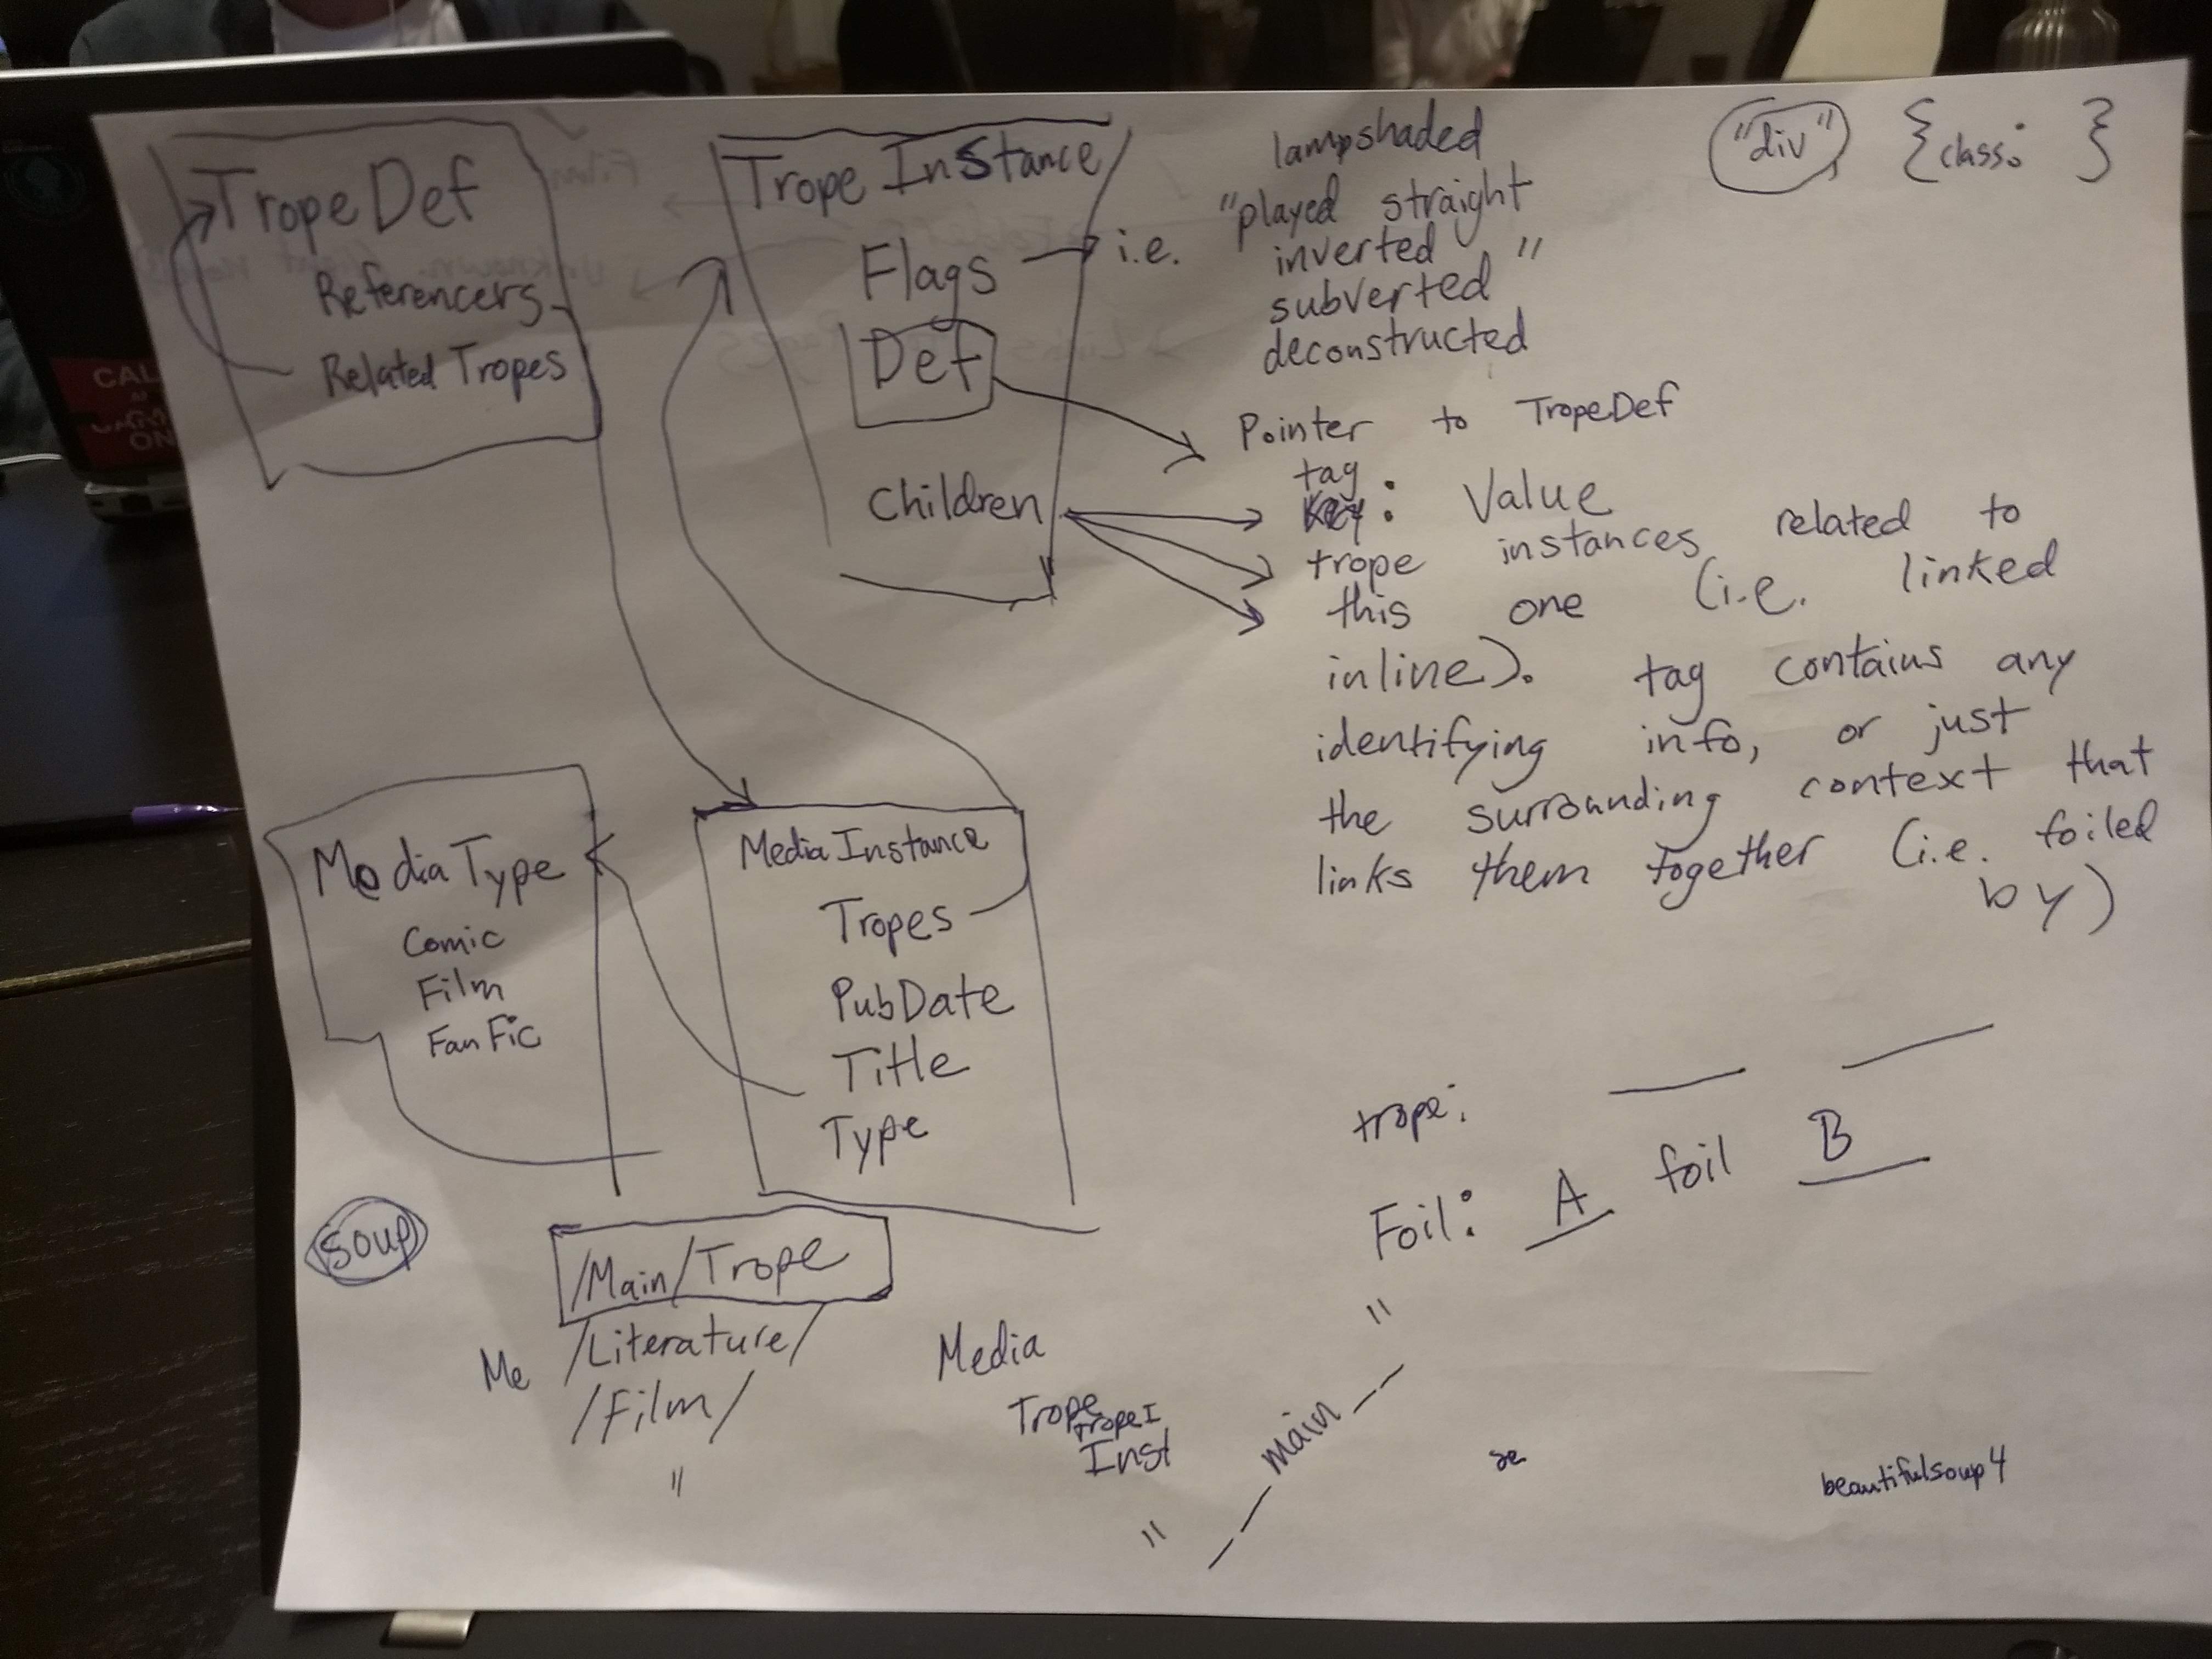 Trope Def
Referencers
Related Tropes
Trope Instance
Flags
Def
Children
i.e.
lampshaded
"played straight
inverted "
subverted
deconstructed
"div", {class: }
Pointer to TropeDef
tag
Key : Value
trope instances related to
this one (i.e. linked
inline). tag contains any
identifying info, or just
the surrounding context that
links them together (i.e. foiled
by)
Media Type
Comic
Film
Fan Fic
Media Instance
Tropes
PubDate
Title
Type
trope:
Foil: A foil B
soup
/Main/Trope
Me /Literature/
/Film/
"
Media
Trope
TropeI
Inst
"
main
"
beautifulsoup4
CAL
ON
Film